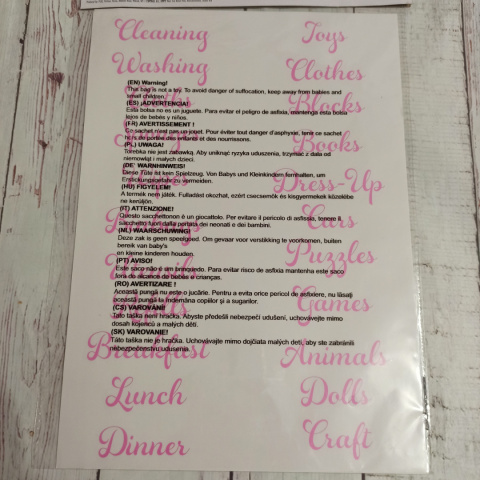 Cleaning
Toys
Washing
Clothes
(EN) Warning!
This bag is not a toy. To avoid danger of suffocation, keep away from babies and
small children.
Blocks
(ES) ¡ADVERTENCIA!
Esta bolsa no es un juguete. Para evitar el peligro de asfixia, mantenga esta bolsa
lejos de bebés y niños.
(FR) AVERTISSEMENT !
Ce sachet n'est pas un jouet. Pour éviter tout danger d'asphyxie, tenir ce sachet
hors de portée des enfants et des nourrissons.
Books
(PL) UWAGA!
Torebka nie jest zabawką. Aby uniknąć ryzyka uduszenia, trzymać z dala od
niemowląt i małych dzieci.
(DE) WARNHINWEIS!
Diese Tüte ist kein Spielzeug. Von Babys und Kleinkindern fernhalten, um
Erstickungsgefahr zu vermeiden.
Dress-Up
(HU) FIGYELEM!
A termék nem játék. Fulladást okozhat, ezért csecsemők és kisgyermekek közelébe
ne kerüljön.
(IT) ATTENZIONE!
Questo sacchetto non è un giocattolo. Per evitare il pericolo di asfissia, tenere il
sacchetto fuori dalla portata dei neonati e dei bambini.
Cars
(NL) WAARSCHUWING!
Deze zak is geen speelgoed. Om gevaar voor verstikking te voorkomen, buiten
bereik van baby's
en kleine kinderen houden.
Puzzles
(PT) AVISO!
Este saco não é um brinquedo. Para evitar risco de asfixia mantenha este saco
fora do alcance de bebés e crianças.
(RO) AVERTIZARE !
Această pungă nu este o jucărie. Pentru a evita orice pericol de asfixiere, nu lăsați
această pungă la îndemâna copiilor și a sugarilor.
Games
(CS) VAROVÁNÍ!
Tato taška není hračka. Abyste předešli nebezpečí udušení, uchovávejte mimo
dosah kojenců a malých dětí.
(SK) VAROVANIE!
Táto taška nie je hračka. Uchovávajte mimo dojčiata malých detí, aby ste zabránili
nebezpečenstvu udusenia.
Breakfast
Animals
Lunch
Dolls
Dinner
Craft